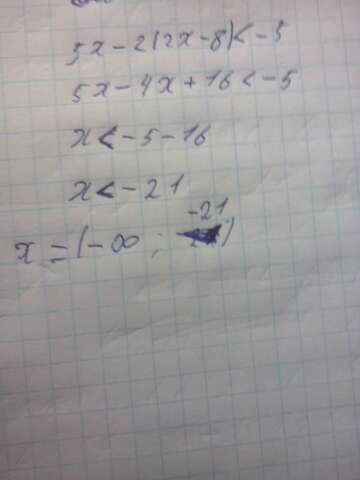 5x-2(2x-8)<-5
5x-4x+16<-5
x<-5-16
x<-21
x=(-∞; -21)